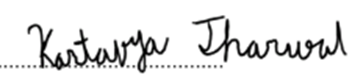 Kartavya Tharwal